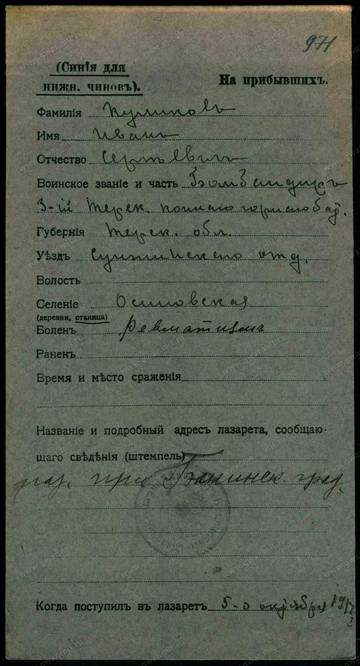 971
(Синія для
нижн. чиновъ).
На прибывшихъ.
Фамилія Куликовъ
Имя Иванъ
Отчество Сергѣевичъ
Воинское званіе и часть Бомбандиръ
3-ій Терск.
Губернія Терск. обл.
Уѣздъ Сунженскаго отд.
Волость
Селеніе
(деревня, станица)
Боленъ Ревматизмъ
Раненъ
Время и мѣсто сраженія
Названіе и подробный адресъ лазарета, сообщаю-
щаго свѣдѣнія (штемпель)
лаз. при
Когда поступилъ въ лазаретъ 5-го октября